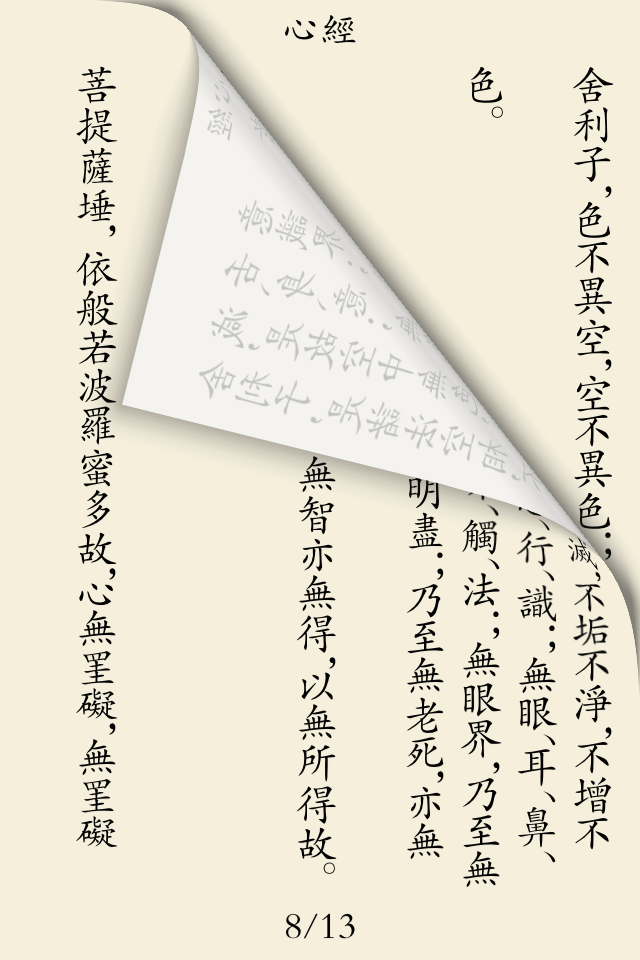 心經
舍利子，色不異空，空不異色；
色。
滅，不垢不淨，不增不
、行、識；無眼、耳、鼻、
、觸、法；無眼界，乃至無
明盡；乃至無老死，亦無
無智亦無得，以無所得故。
菩提薩埵，依般若波羅蜜多故，心無罣礙，無罣礙
8/13